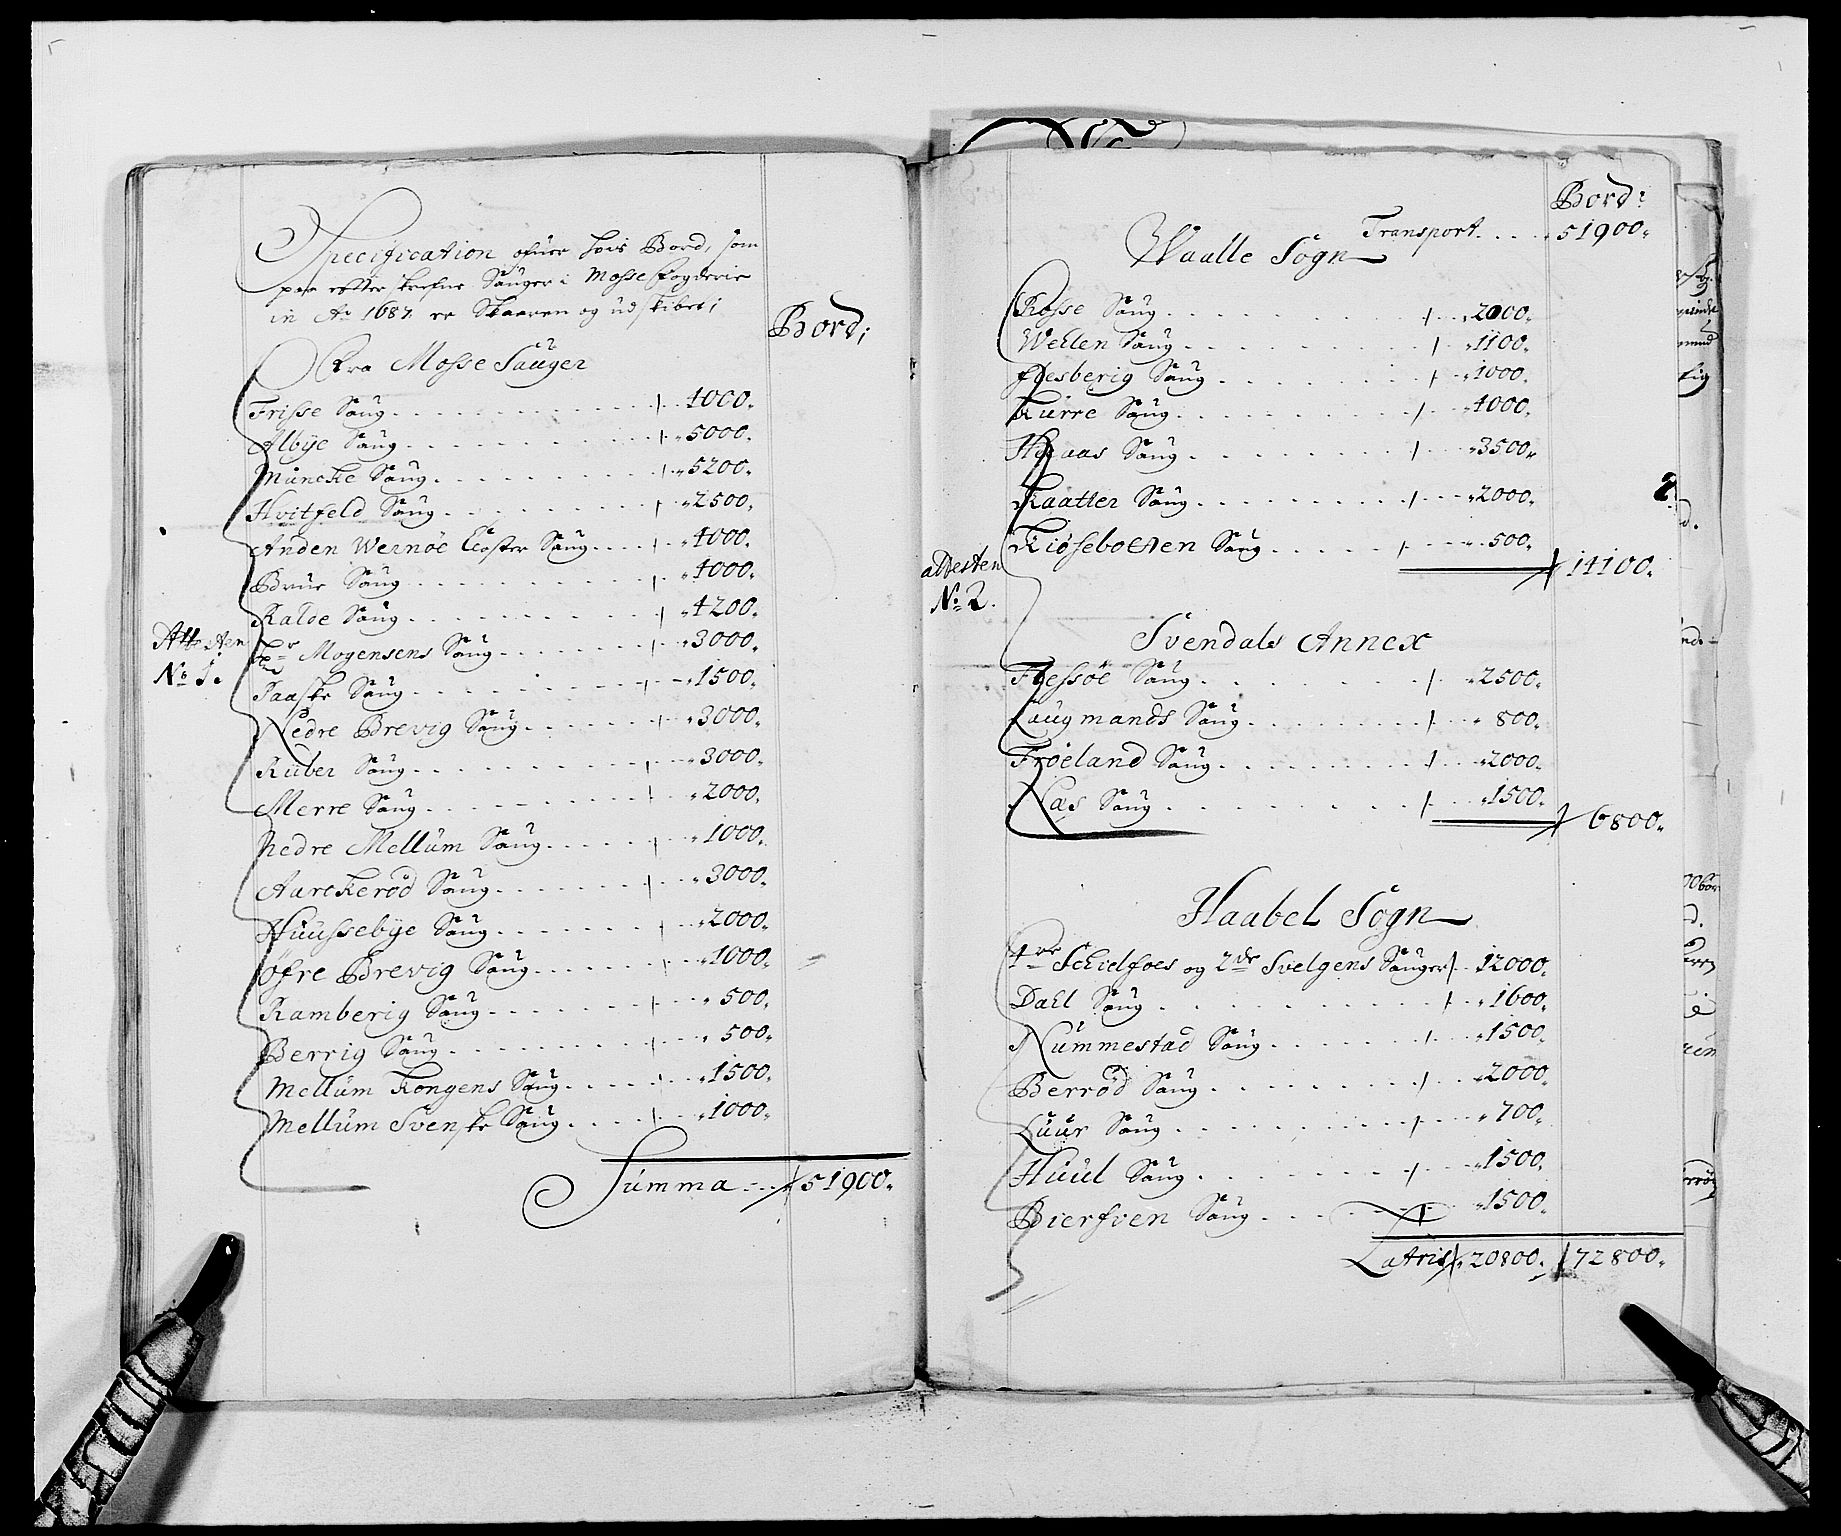 Specification ofuer hvis Bord, som
paa efter skrefne Sauger i Mosse fogderie
in Ao 1687 er Skaaren og udskibet;
Bord;
Fra Mosse Sauger
Frisse Saug 4000.
Albÿe Saug 5000.
Müncke Saug 5200.
Hvitfeld Saug 2500.
Anden Wernöe Closter Saug 4000.
Brüe Saug 4000.
Kalde Saug 4200.
Attesten
No 1.
Mogensens Saug 3000.
Paaske Saug 1500.
Nedre Brevig Saug 3000.
Rüber Saug 3000.
Merre Saug 2000.
Nedre Mellüm Saug 1000.
Aarckeröd Saug 3000.
Huussebÿe Saug 2000.
Øfre Brevig Saug 1000.
Ramberig Saug 500.
Berrig Saug 500.
Mellüm Kongens Saug 1500.
Mellüm Svenske Saug 1000.
Summa 51900.
Bord:
Transport 51900.
Waalle Sogn
Rosse Saug 2000.
Wellen Saug 1100.
Flesberig Saug 1000.
Kürre Saug 4000.
Haas Saug 3500.
Kaatter Saug 2000.
Kiøsebotten Saug 500.
14100.
attesten
No 2.
Svendals Annex
Flessöe Saug 2500.
Laugmands Saug 800.
Fröeland Saug 2000.
Næs Saug 1500.
6800.
Haabel Sogn
4re Schielfoes og 2de Svelgens Sauger 12000.
Dael Saug 1600.
Nümmestad Saug 1500.
Berröd Saug 2000.
Luur Saug 700.
Huul Saug 1500.
Bierfven Saug 1500.
Lateris 20800. 72800.